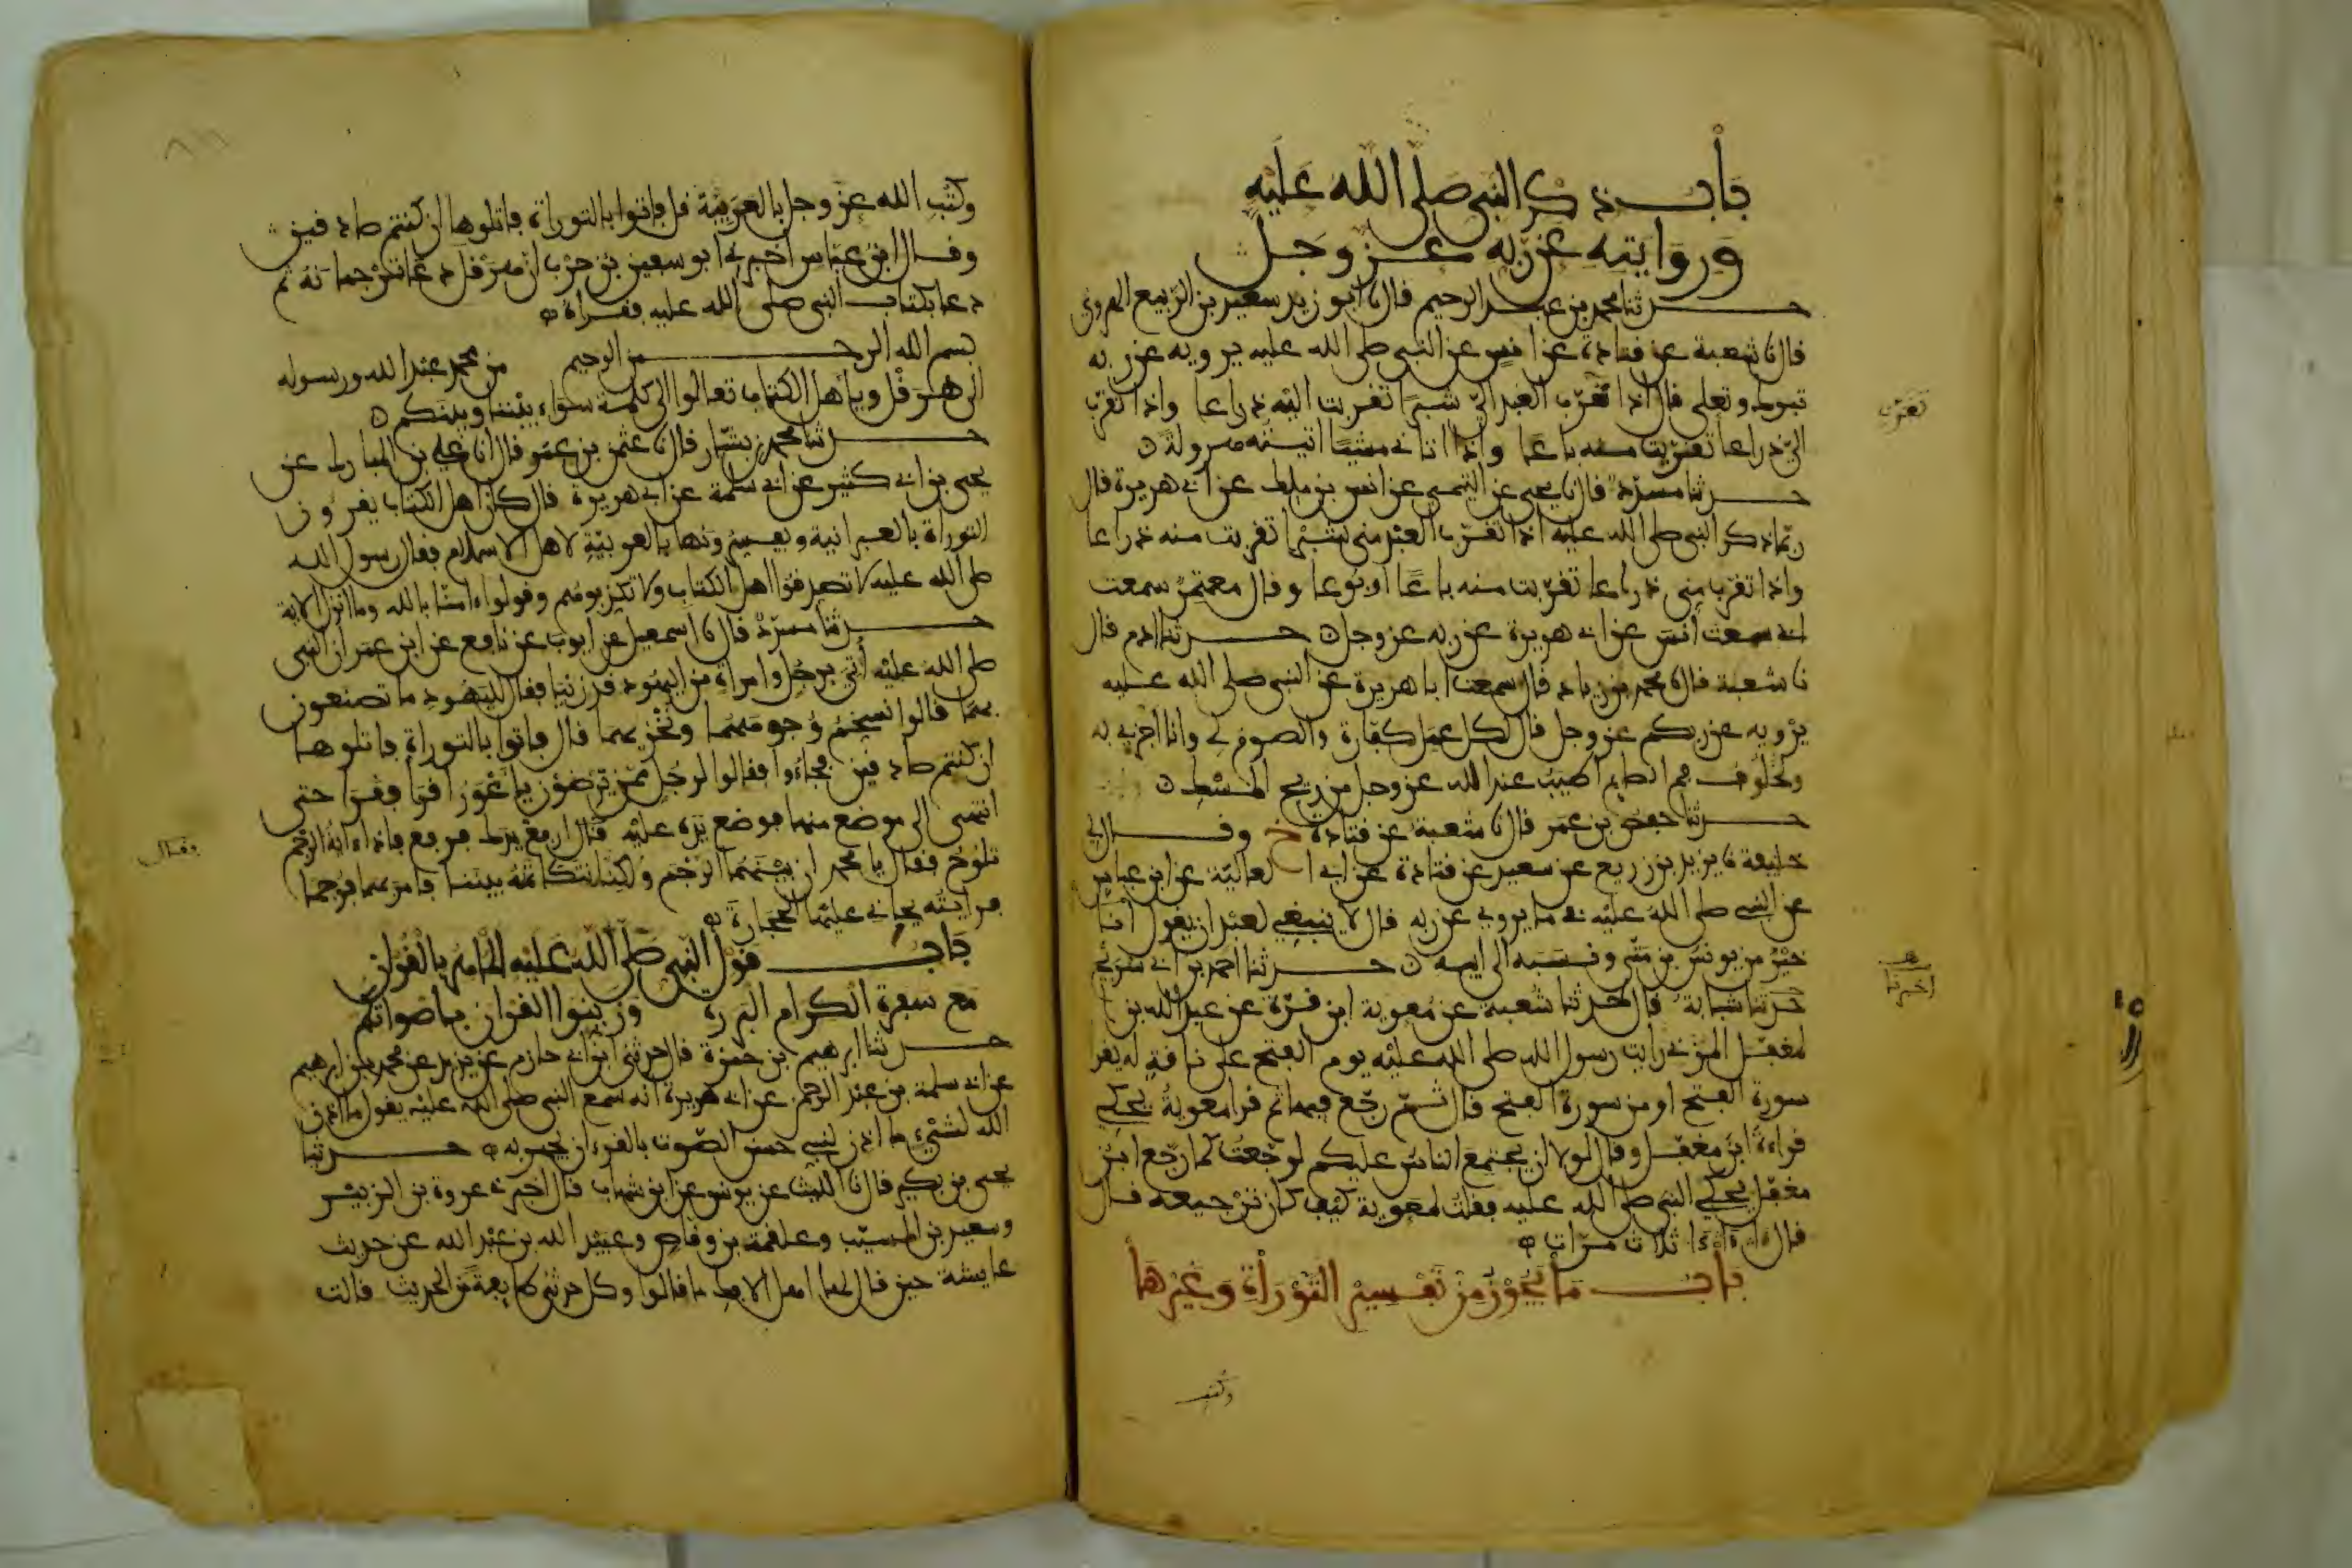 باب ذكر النبي صلى الله عليه
وروايته عن ربه عز وجل
حدثنا محمد بن عبد الرحيم قال نا أبو زيد سعيد بن الربيع الهروي
قال نا شعبة عن قتادة عن أنس عن النبي صلى الله عليه يرويه عن ربه
تبرك وتعلى قال إذا تقرب العبد إلي شبرا تقربت إليه ذراعا وإذا تقرب
تقرب
إلي ذراعا تقربت منه باعا وإذا أتاني مشيا أتيته هرولة
حدثنا مسدد قال نا يحيى عن التيمي عن أنس بن ملك عن أبي هريرة قال
ربما ذكر النبي صلى الله عليه إذا تقرب العبد مني شبرا تقربت منه ذراعا
وإذا تقرب مني ذراعا تقربت منه باعا أو بوعا وقال معتمر سمعت
أبي سمعت أنس عن أبي هريرة عن ربه عز وجل حدثنا ادم قال
نا شعبة قال نا محمد بن زياد قال سمعت أبا هريرة عن النبي صلى الله عليه
يرويه عن ربكم عز وجل قال لكل عمل كفارة والصوم لي وأنا أجزي به
ولخلوف فم الصايم أطيب عند الله عز وجل من ريح المسك
حدثنا حفص بن عمر قال نا شعبة عن قتادة خ وقال لي
خليفة نا يزيد بن زريع عن سعيد عن قتادة عن أبي العالية عن ابن عباس
عن النبي صلى الله عليه في ما يروي عن ربه قال لا ينبغي لعبد أن يقول أنا
خير من يونس بن متى ونسبه إلى أبيه حدثنا أحمد بن أبي سريج
أخبرنا
حدثنا شبابة قال حدثنا شعبة عن معوية ابن قرة عن عبد الله بن
مغفل المزني رأيت رسول الله صلى الله عليه يوم الفتح على ناقة له يقرأ
سورة الفتح أو من سورة الفتح قال ثم رجع فيها ثم قرأ معوية يحكي
قراءة ابن مغفل وقال لولا أن يجتمع الناس عليكم لرجعت كما رجع ابن
مغفل يحكي النبي صلى الله عليه فقلت لمعوية كيف كان ترجيعه قال
قال ءاءاءا ثلاث مرات
باب ما يجوز من تفسير التوراة وغيرها
وكتب
وكتب الله عز وجل بالعربية قل فاتوا بالتوراة فاتلوها إن كنتم صادقين
وقال ابن عباس أخبرني أبو سفين بن حرب أن هرقل دعا ترجمانه ثم
دعا بكتاب النبي صلى الله عليه فقرأه
بسم الله الرحمن الرحيم من محمد عبد الله ورسوله
إلى هرقل ويا أهل الكتاب تعالوا إلى كلمة سواء بيننا وبينكم
حدثنا محمد بن بشار قال نا عثمن بن عمر قال أنا علي بن المبارك عن
يحيى بن أبي كثير عن أبي سلمة عن أبي هريرة قال كان أهل الكتاب يقرءون
التوراة بالعبرانية ويفسرونها بالعربية لأهل الإسلام فقال رسول الله
صلى الله عليه لا تصدقوا أهل الكتاب ولا تكذبوهم وقولوا ءامنا بالله وما أنزل الاية
حدثنا مسدد قال نا إسمعيل عن أيوب عن نافع عن ابن عمر أن النبي
صلى الله عليه أتي برجل وامرأة من اليهود قد زنيا فقال لليهود ما تصنعون
بهما قالوا نسخم وجوههما ونخزيهما قال فاتوا بالتوراة فاتلوها
إن كنتم صادقين فجاءوا فقالوا لرجل ممن يرضون يا أعور اقرأ فقرأ حتى
انتهى إلى موضع منها فوضع يده عليه قال ارفع يدك فرفع فإذا ءاية الرجم
وقال
تلوح فقال يا محمد إن بينهما الرجم ولكنا نتكاتمه بيننا فأمر بهما فرجما
فرأيته يجانئ عليها الحجارة
باب قول النبي صلى الله عليه الماهر بالقرآن
مع سفرة الكرام البررة وزينوا القرآن بأصواتكم
حدثنا إبرهيم بن حمزة قال حدثني ابن أبي حازم عن يزيد عن محمد بن إبرهيم
عن أبي سلمة بن عبد الرحمن عن أبي هريرة أنه سمع النبي صلى الله عليه يقول ما أذن
الله لشيء ما أذن لنبي حسن الصوت بالقرءان يجهر به حدثنا
يحيى بن بكير قال نا الليث عن يونس عن ابن شهاب قال أخبرني عروة بن الزبير
وسعيد بن المسيب وعلقمة بن وقاص وعبيد الله بن عبد الله عن حديث
عايشة حين قال لها أهل الإفك ما قالوا وكل حدثني طايفة من الحديث قالت